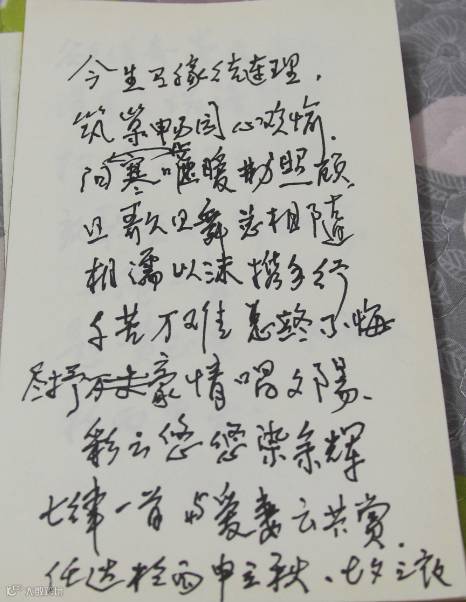 今生有缘结连理,
筑巢申西同心欢愉.
问寒嘘暖勤照顾.
且歌且舞总相随
相濡以沫携手行
千苦万难总不悔
尽抒豪情唱夕陽、
彩云悠悠染余辉
七律一首 与爱妻云共赏.
于丙申立秋、七夕之夜